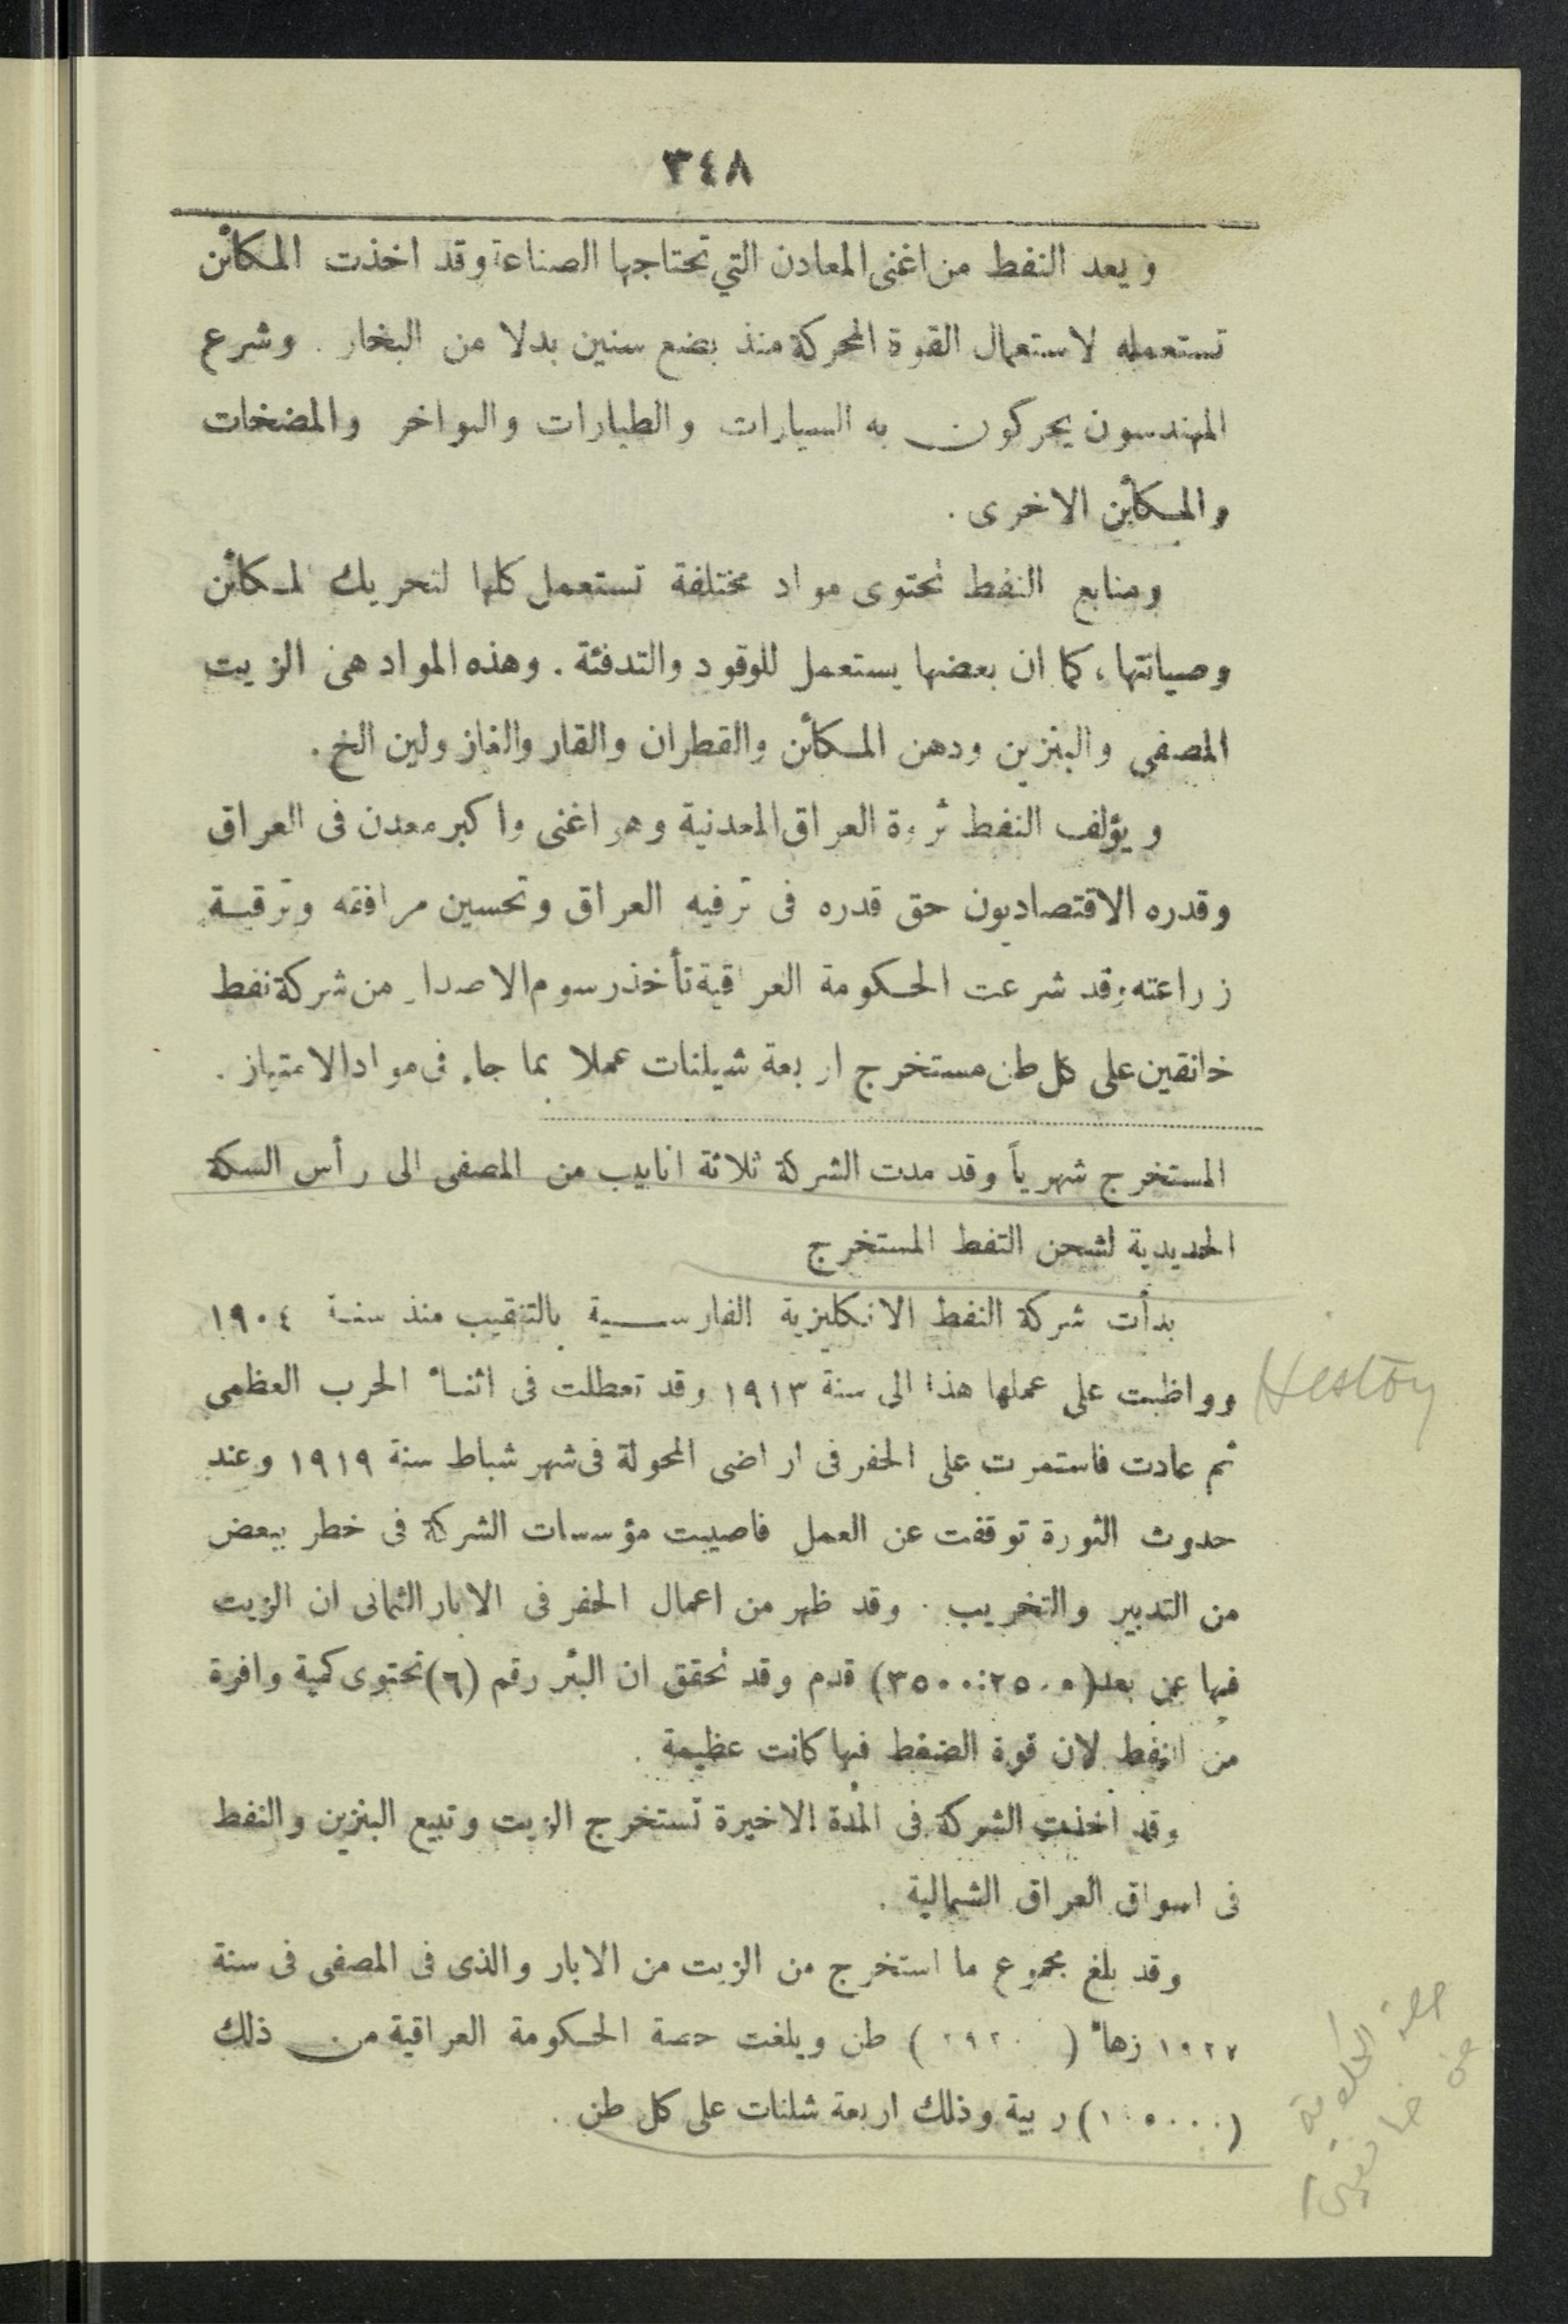 ٣٤٨
ويعد النفط من اغنى المعادن التي تحتاجها الصناعة وقد اخذت المكائن
تستعمله لاستعمال القوة المحركة منذ بضع سنين بدلا من البخار . وشرع
المهندسون يحركون به السيارات والطيارات والبواخر والمضخات
والمكائن الاخرى .
ومنابع النفط تحتوى مواد مختلفة تستعمل كلها لتحريك المكائن
وصيانتها ، كما ان بعضها يستعمل للوقود والتدفئة . وهذه المواد هى الزيت
المصفى والبنزين ودهن المكائن والقطران والقار والغاز ولين الخ .
ويؤلف النفط ثروة العراق المعدنية وهو اغنى واكبر معدن فى العراق
وقدره الاقتصاديون حق قدره فى ترفيه العراق وتحسين مرافقه وترقية
زراعته وقد شرعت الحكومة العراقية تأخذ رسوم الاصدار من شركة نفط
خانقين على كل طن مستخرج اربعة شيلنات عملا بما جاء فى مواد الامتياز .
المستخرج شهرياً وقد مدت الشركة ثلاثة انابيب من المصفى الى رأس السكة
الحديدية لشحن النفط المستخرج
بدأت شركة النفط الانكليزية الفارسية بالتنقيب منذ سنة ١٩٠٤
وواظبت على عملها هذا الى سنة ١٩١٣ وقد تعطلت فى اثناء الحرب العظمى
ثم عادت فاستمرت على الحفر فى اراضى المحولة فى شهر شباط سنة ١٩١٩ وعند
حدوث الثورة توقفت عن العمل فاصيبت مؤسسات الشركة فى خطر ببعض
من التدبير والتخريب . وقد ظهر من اعمال الحفر فى الابار الثمانى ان الزيت
فيها عن بعد (٢٥٠٠:٣٥٠٠) قدم وقد تحقق ان البئر رقم (٦) تحتوى كمية وافرة
من النفط لان قوة الضغط فيها كانت عظيمة .
وقد اخذت الشركة فى المدة الاخيرة تستخرج الزيت وتبيع البنزين والنفط
فى اسواق العراق الشمالية .
وقد بلغ مجموع ما استخرج من الزيت من الابار والذى فى المصفى فى سنة
١٩٢٧ زهاء ( ) طن وبلغت حصة الحكومة العراقية من ذلك
(١٠٥٠٠٠) ربية وذلك اربعة شلنات على كل طن .
Hestoy
حصة الحكومة